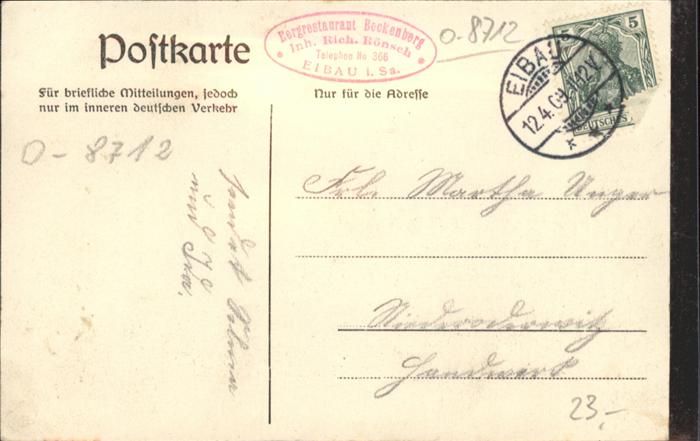 Postkarte
Für briefliche Mitteilungen, jedoch
nur im inneren deutschen Verkehr
Bergrestaurant Beckenberg
Inh. Rich. Rönsch
Telephon No 366
EIBAU i. Sa.
O-8712
Nur für die Adresse
5
DEUTSCHES
EIBAU
12.4.09. 12V.
O-8712
sendet
und
Frl. Martha Unger
Niederoderwitz
Handwerk
23,-